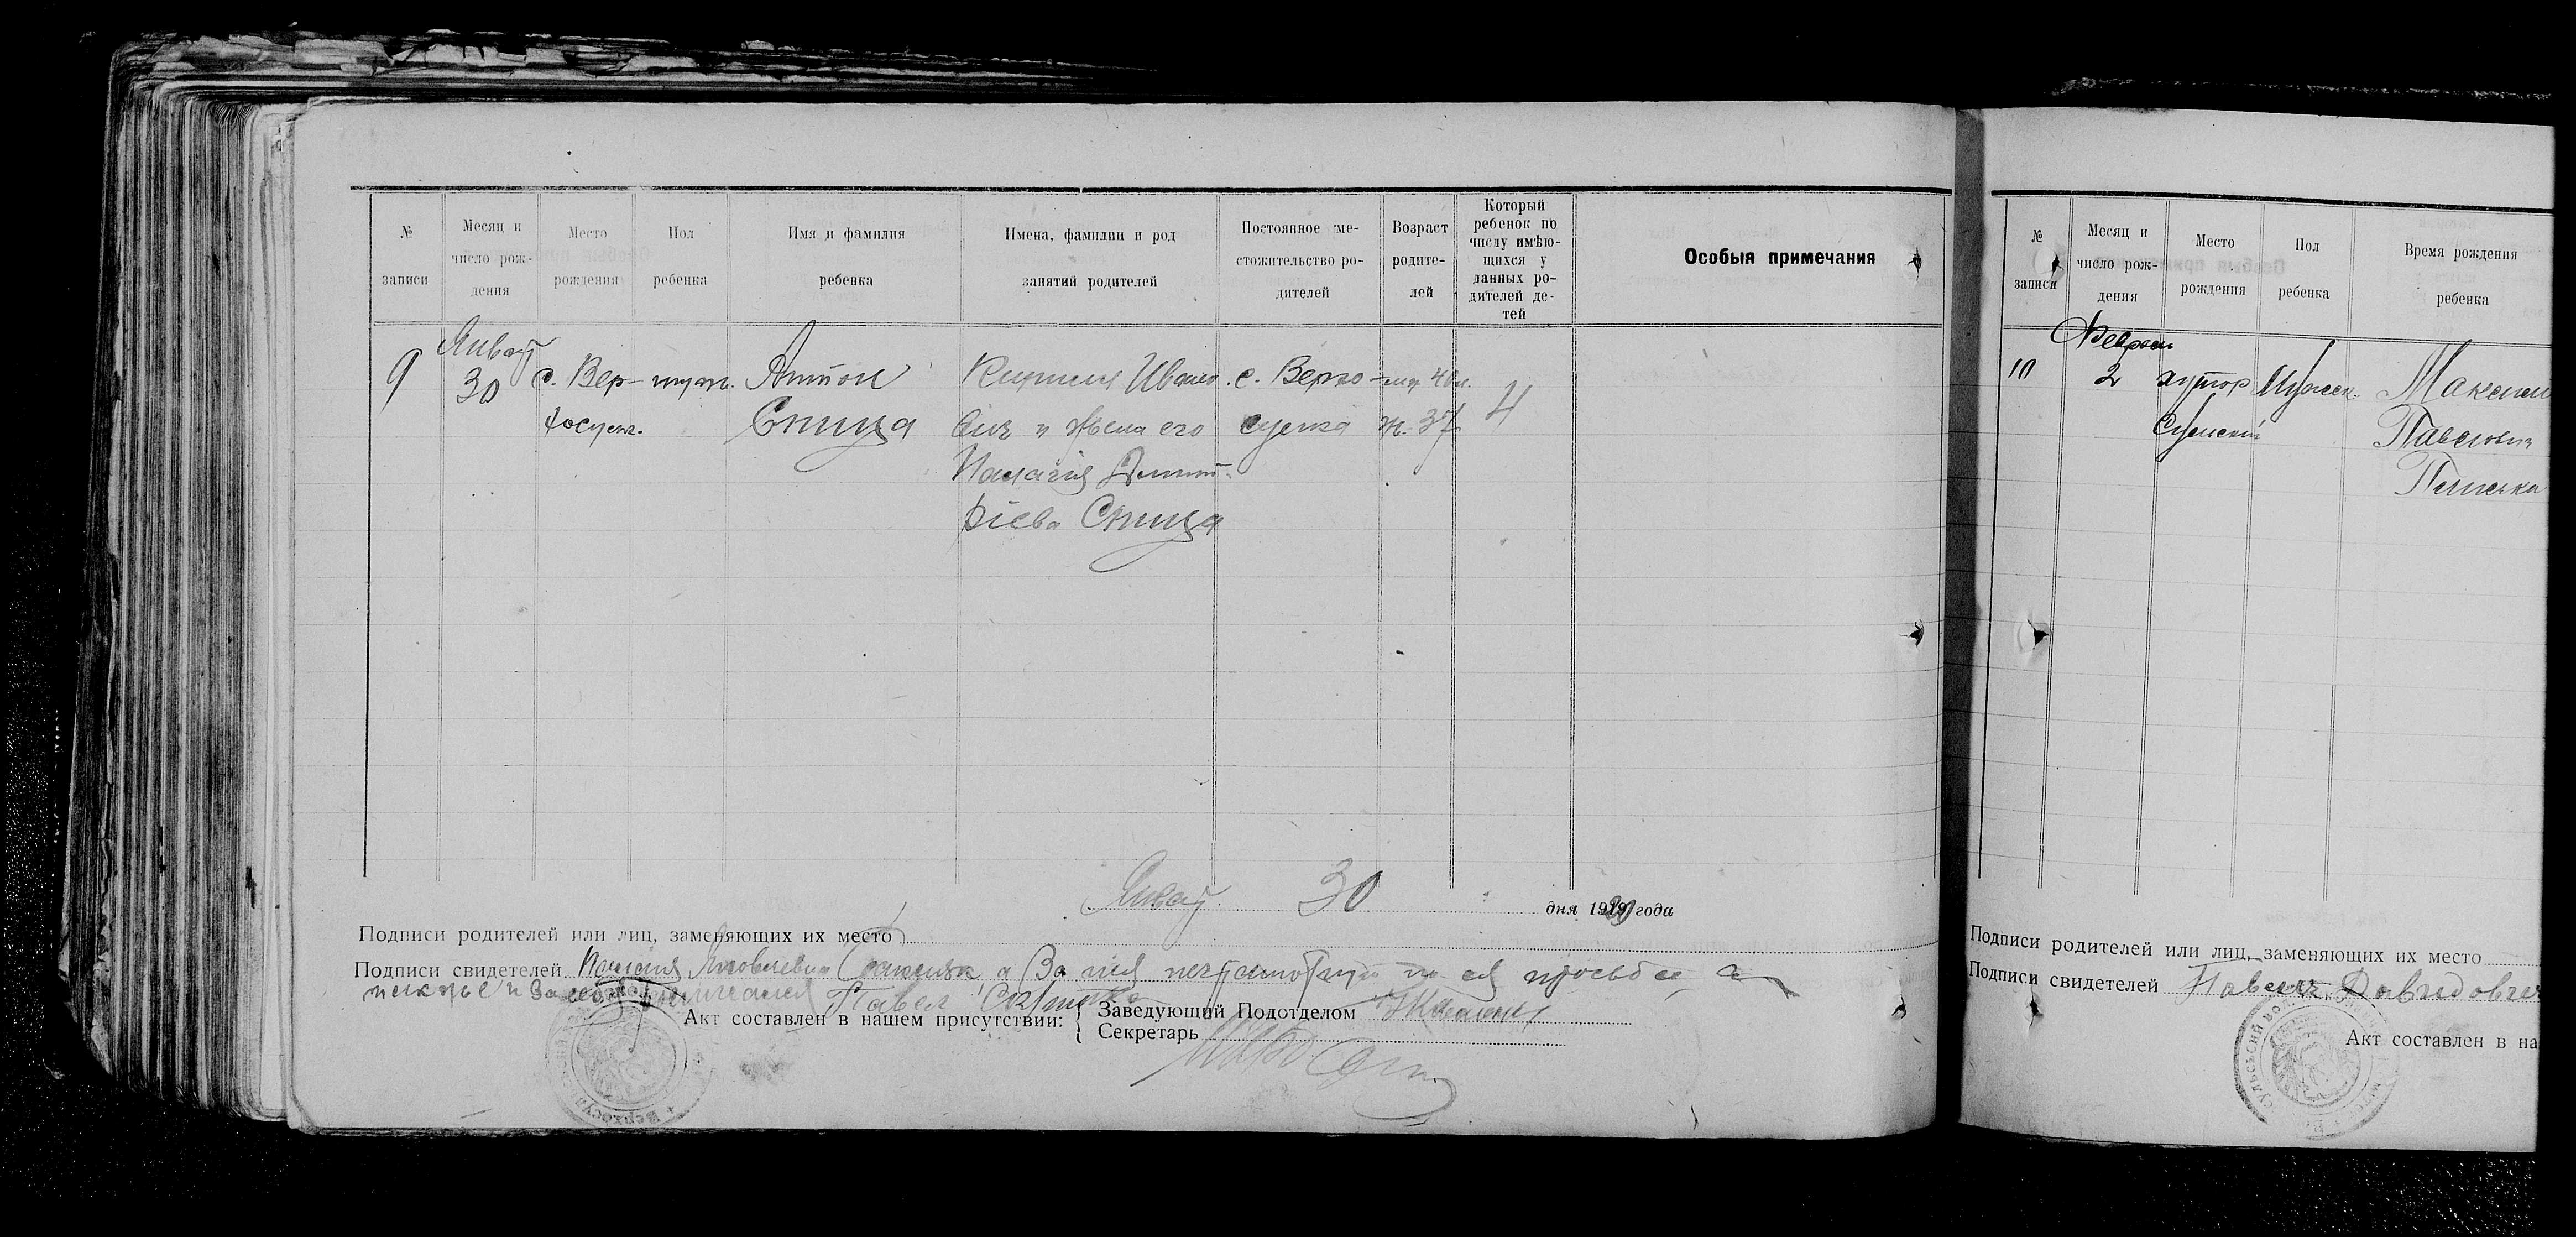 № записи
Месяц и число рож- дения
Место рождения
Пол ребенка
Имя и фамилия ребенка
Имена, фамилии и род занятий родителей
Постоянное ме- стожительство ро- дителей
Возраст родите- лей
Который ребенок по числу имѣю- щихся у данных ро- дителей де- тей
Особыя примечания
9
Январ
30
с. Вер- хосул.
муж.
Антон
Спица
Кирилл Ивано
вич и жена его
Палагія Димит-
ріева Спица
с. Верхо-
сулка
м. 40 л.
ж. 37
4
Январ 30 дня 1920 года
Подписи родителей или лиц, заменяющих их место
Подписи свидетелей Яковлевна а за нея неграмотную по ея просьбе
Павел
Акт составлен в нашем присутствии:
Заведующий Подотделом
Секретарь
№ записи
Месяц и число рож- дения
Место рождения
Пол ребенка
Время рождения ребенка
10
Феврал
2
хутор
Сульский
Мужск.
Максим
Павлович
Подписи родителей или лиц, заменяющих их место
Подписи свидетелей Павел Давидович
Акт составлен в на